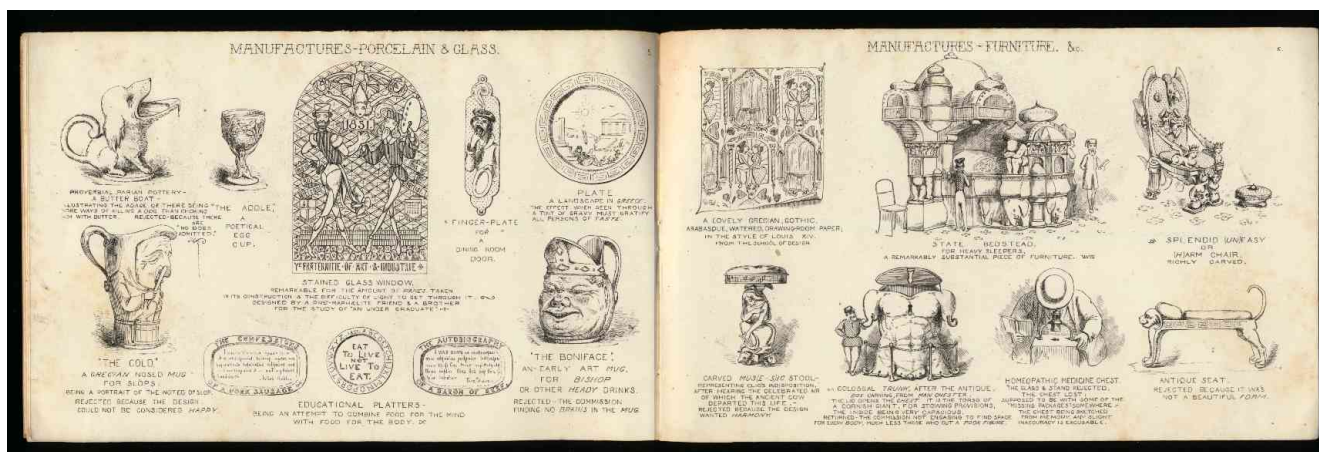 MANUFACTURES-PORCELAIN & GLASS.
PROVERBIAL PARIAN POTTERY-
A BUTTER BOAT-
ILLUSTRATING THE ADAGE OF THERE BEING
MORE WAYS OF KILLING A DOG THAN CHOKING
HIM WITH BUTTER. REJECTED-BECAUSE THERE
ARE
"NO DOGS
ADMITTED."
"THE ADDLE,"
A
POETICAL
EGG
CUP.
1851
Ye FRATERNITIE OF ART & INDUSTRIE
STAINED GLASS WINDOW.
REMARKABLE FOR THE AMOUNT OF PANES TAKEN
IN ITS CONSTRUCTION & THE DIFFICULTY OF LIGHT TO GET THROUGH IT.
DESIGNED BY A PRE-RAPHAELITE FRIEND & A BROTHER
FOR THE STUDY OF "AN UNDER GRADUATE"
A FINGER-PLATE
FOR
A
DINING ROOM
DOOR.
PLATE
A LANDSCAPE IN GREECE.
THE EFFECT WHEN SEEN THROUGH
A TINT OF GRAVY MUST GRATIFY
ALL PERSONS OF TASTE.
"THE COLD"
A GRECYAN NOSLD MUG
FOR SLOPS.
BEING A PORTRAIT OF THE NOTED OF SLOP.
REJECTED BECAUSE THE DESIGN
COULD NOT BE CONSIDERED HAPPY.
THE CONFESSIONS
OF A PORK SAUSAGE
EAT
TO LIVE
NOT
LIVE TO
EAT.
THE AUTOBIOGRAPHY
OF A BARON OF BEEF
EDUCATIONAL PLATTERS-
BEING AN ATTEMPT TO COMBINE FOOD FOR THE MIND
WITH FOOD FOR THE BODY.
"THE BONIFACE"
AN EARLY ART MUG.
FOR BISHOP
OR OTHER HEADY DRINKS.
REJECTED-THE COMMISSION
FINDING NO BRAINS IN THE MUG.
MANUFACTURES-FURNITURE. &c.
A LOVELY GRECIAN, GOTHIC,
ARABASQUE, WATERED, DRAWING-ROOM PAPER;
IN THE STYLE OF LOUIS XIV.
FROM THE SCHOOL OF DESIGN
STATE BEDSTEAD.
FOR HEAVY SLEEPERS.
A REMARKABLY SUBSTANTIAL PIECE OF FURNITURE.
A SPLENDID (UN)EASY
OR
(H)ARM CHAIR.
RICHLY CARVED.
CARVED MUSIC-SIC STOOL.
REPRESENTING GLASS INDISPOSITION,
AFTER HEARING THE CELEBRATED AIR
OF WHICH THE ANCIENT COW
DEPARTED THIS LIFE.-
REJECTED BECAUSE THE DESIGN
WANTED HARMONY.
A COLOSSAL TRUNK, AFTER THE ANTIQUE.
THE LID OPENS THE CHEST IT IS THE TORSO OF
A CORNISH GIANT, FOR STOWING PROVISIONS,
THE INSIDE BEING VERY CAPACIOUS.
RETURNED-THE COMMISSION NOT ENGAGING TO FIND SPACE
FOR EVERY BODY, MUCH LESS THOSE WHO CUT A POOR FIGURE.
HOMEOPATHIC MEDICINE CHEST.
THE GLASS & STAND REJECTED,
THE CHEST LOST;
SUPPOSED TO BE WITH SOME OF THE
"MISSING PACKAGES" SOMEWHERE
THE CHEST BEING SKETCHED
FROM MEMORY ANY SLIGHT
INACCURACY IS EXCUSABLE.
ANTIQUE SEAT.
REJECTED BECAUSE IT WAS
NOT A BEAUTIFUL FORM.